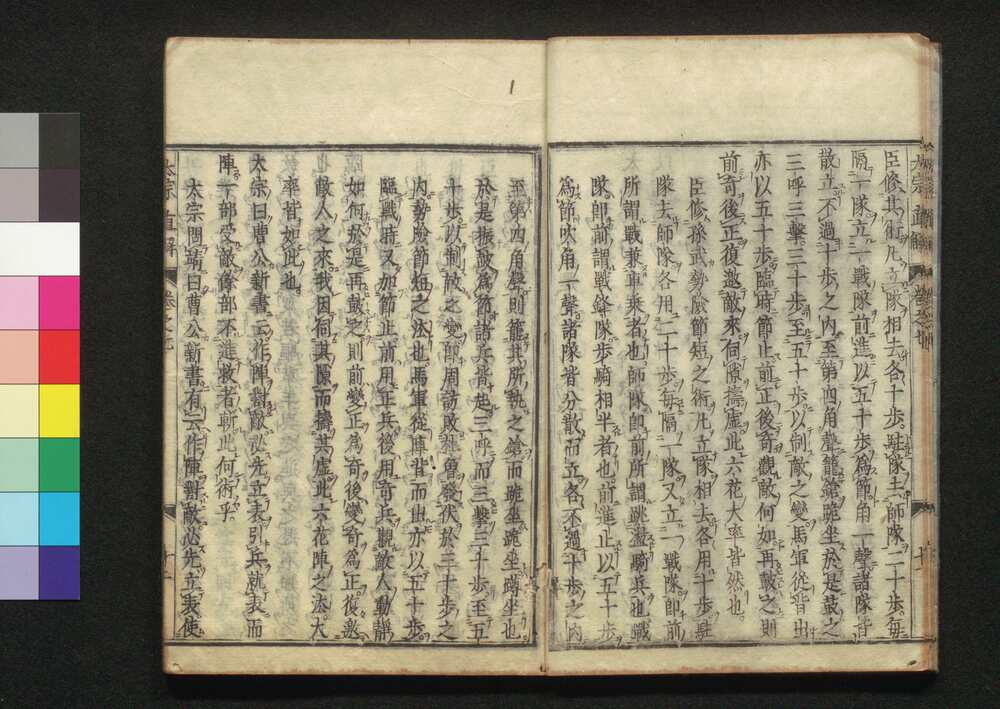 臣修其術凡立隊相去各十歩駐隊去師隊二十歩毎
隔一隊立一戰隊前進以五十歩爲節角一聲諸隊皆
散立不過十歩之内至第四角聲籠鎗跪坐於是鼓之
三呼三擊三十歩至五十歩以制敵之變馬軍從背出
亦以五十歩臨時節止前正後奇觀敵何如再鼓之則
前奇後正復邀敵來伺隙擣虚此六花大率皆然也
臣修孫武勢險節短之術凡立隊相去各用十歩駐
隊去師隊各用二十歩毎隔一隊又立一戰隊即前
所謂戰兼車乗者也師隊即前所謂跳盪騎兵也戰
隊即前謂戰鋒隊歩騎相半者也前進止以五十歩
爲節吹角一聲諸隊皆分散而立各不過十歩之内
至第四角聲則籠其所執之鎗而跪坐跪坐蹲坐也
於是振鼓爲節諸兵皆起三呼而三擊三十歩至五
十歩以制敵之變即周訪敗杜曽發伏於三十歩之
内勢險節短之法也馬軍從陣背而出亦以五十歩
臨戰時又加節止前用正兵後用奇兵觀敵人動靜
如何於是再鼓之則前變正爲奇後變奇爲正復邀
敵人之來我因伺其隙而擣其虚此六花陣之法大
率皆如此也
太宗曰曹公新書云作陣對敵必先立表引兵就表而
陣一部受敵餘部不進救者斬此何術乎
太宗問靖曰曹公新書有云作陣對敵必先立表使
太宗直解